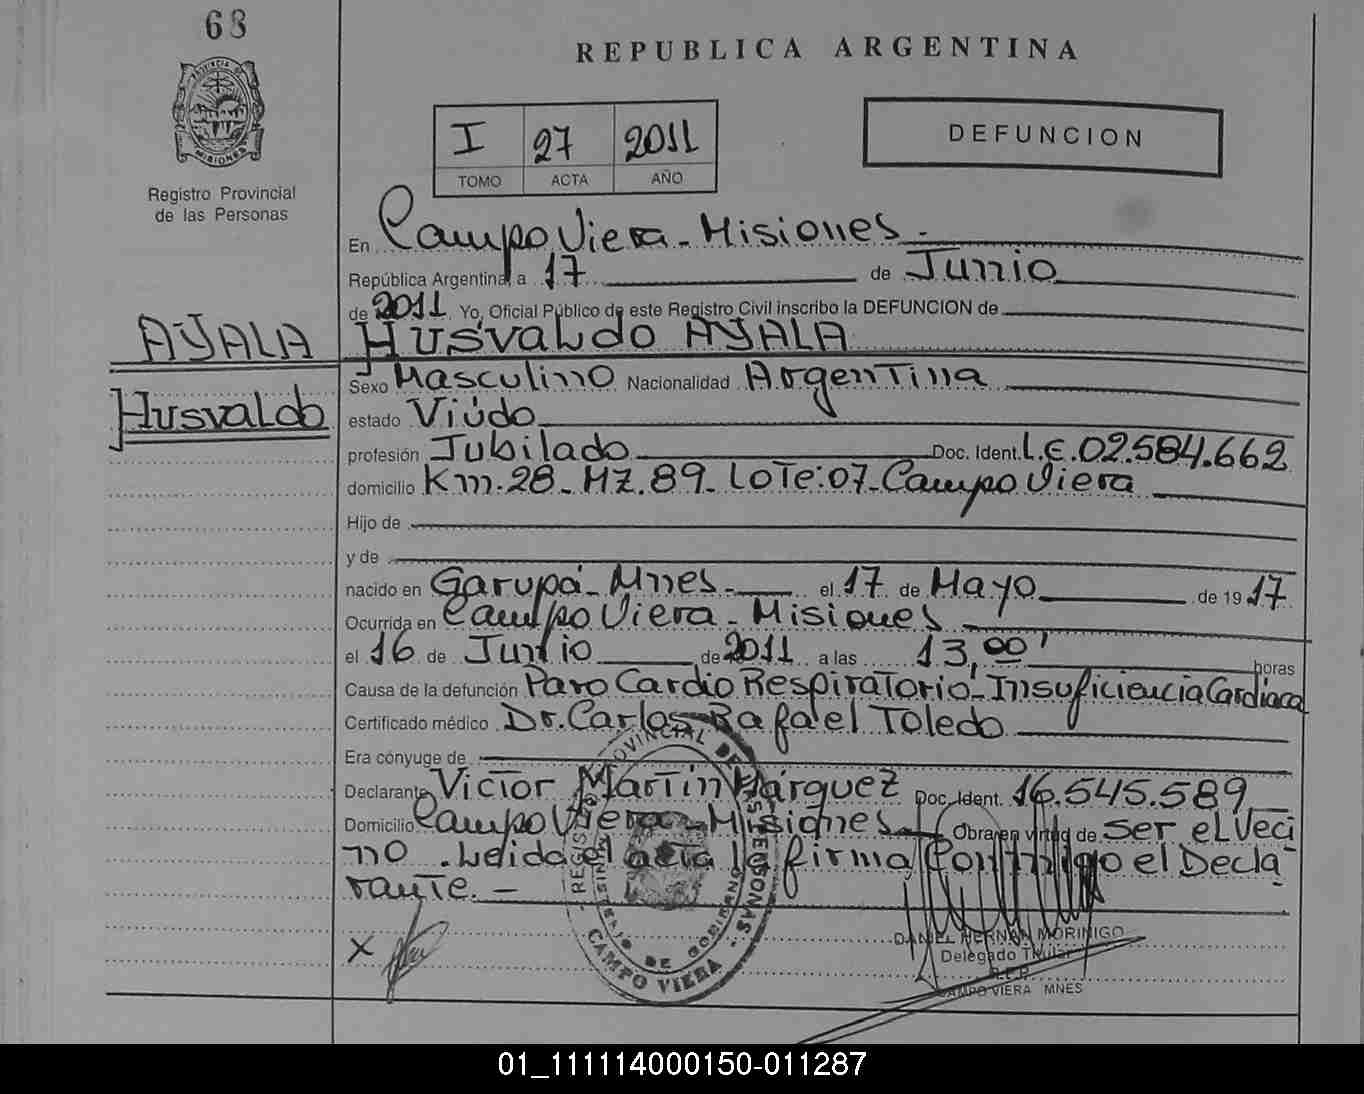 68
REPUBLICA ARGENTINA
PROVINCIA DE
MISIONES
Registro Provincial
de las Personas
I 27 2011
TOMO ACTA AÑO
DEFUNCION
En Campo Viera - Misiones -
República Argentina, a 17 de Junio
de 2011 Yo, Oficial Público de este Registro Civil inscribo la DEFUNCION de
AYALA
Husvaldo
Husvaldo AYALA
Sexo Masculino Nacionalidad Argentina
estado Viúdo
profesión Jubilado Doc. Ident. L.E. 02.584.662
domicilio Km. 28 - MZ. 89 - Lote: 07 - Campo Viera
Hijo de
y de
nacido en Garupá - Mnes. - el 17 de Mayo de 19 17
Ocurrida en Campo Viera - Misiones
el 16 de Junio de 2011 a las 13,00' horas
Causa de la defunción Paro Cardio Respiratorio - Insuficiencia Cardiaca
Certificado médico Dr. Carlos Rafael Toledo
Era cónyuge de
Declarante Victor Martín Márquez Doc. Ident. 16.545.589
Domicilio Campo Viera - Misiones Obra en virtud de ser el veci
no. Leida el acta la firma conmigo el Decla-
rante. -
X
PROVINCIAL DE LAS PERSONAS
MINISTERIO DE GOBIERNO
CAMPO VIERA
DANIEL HERNAN MORINIGO
Delegado Titular
R.P.P.
CAMPO VIERA MNES
01_111114000150-011287